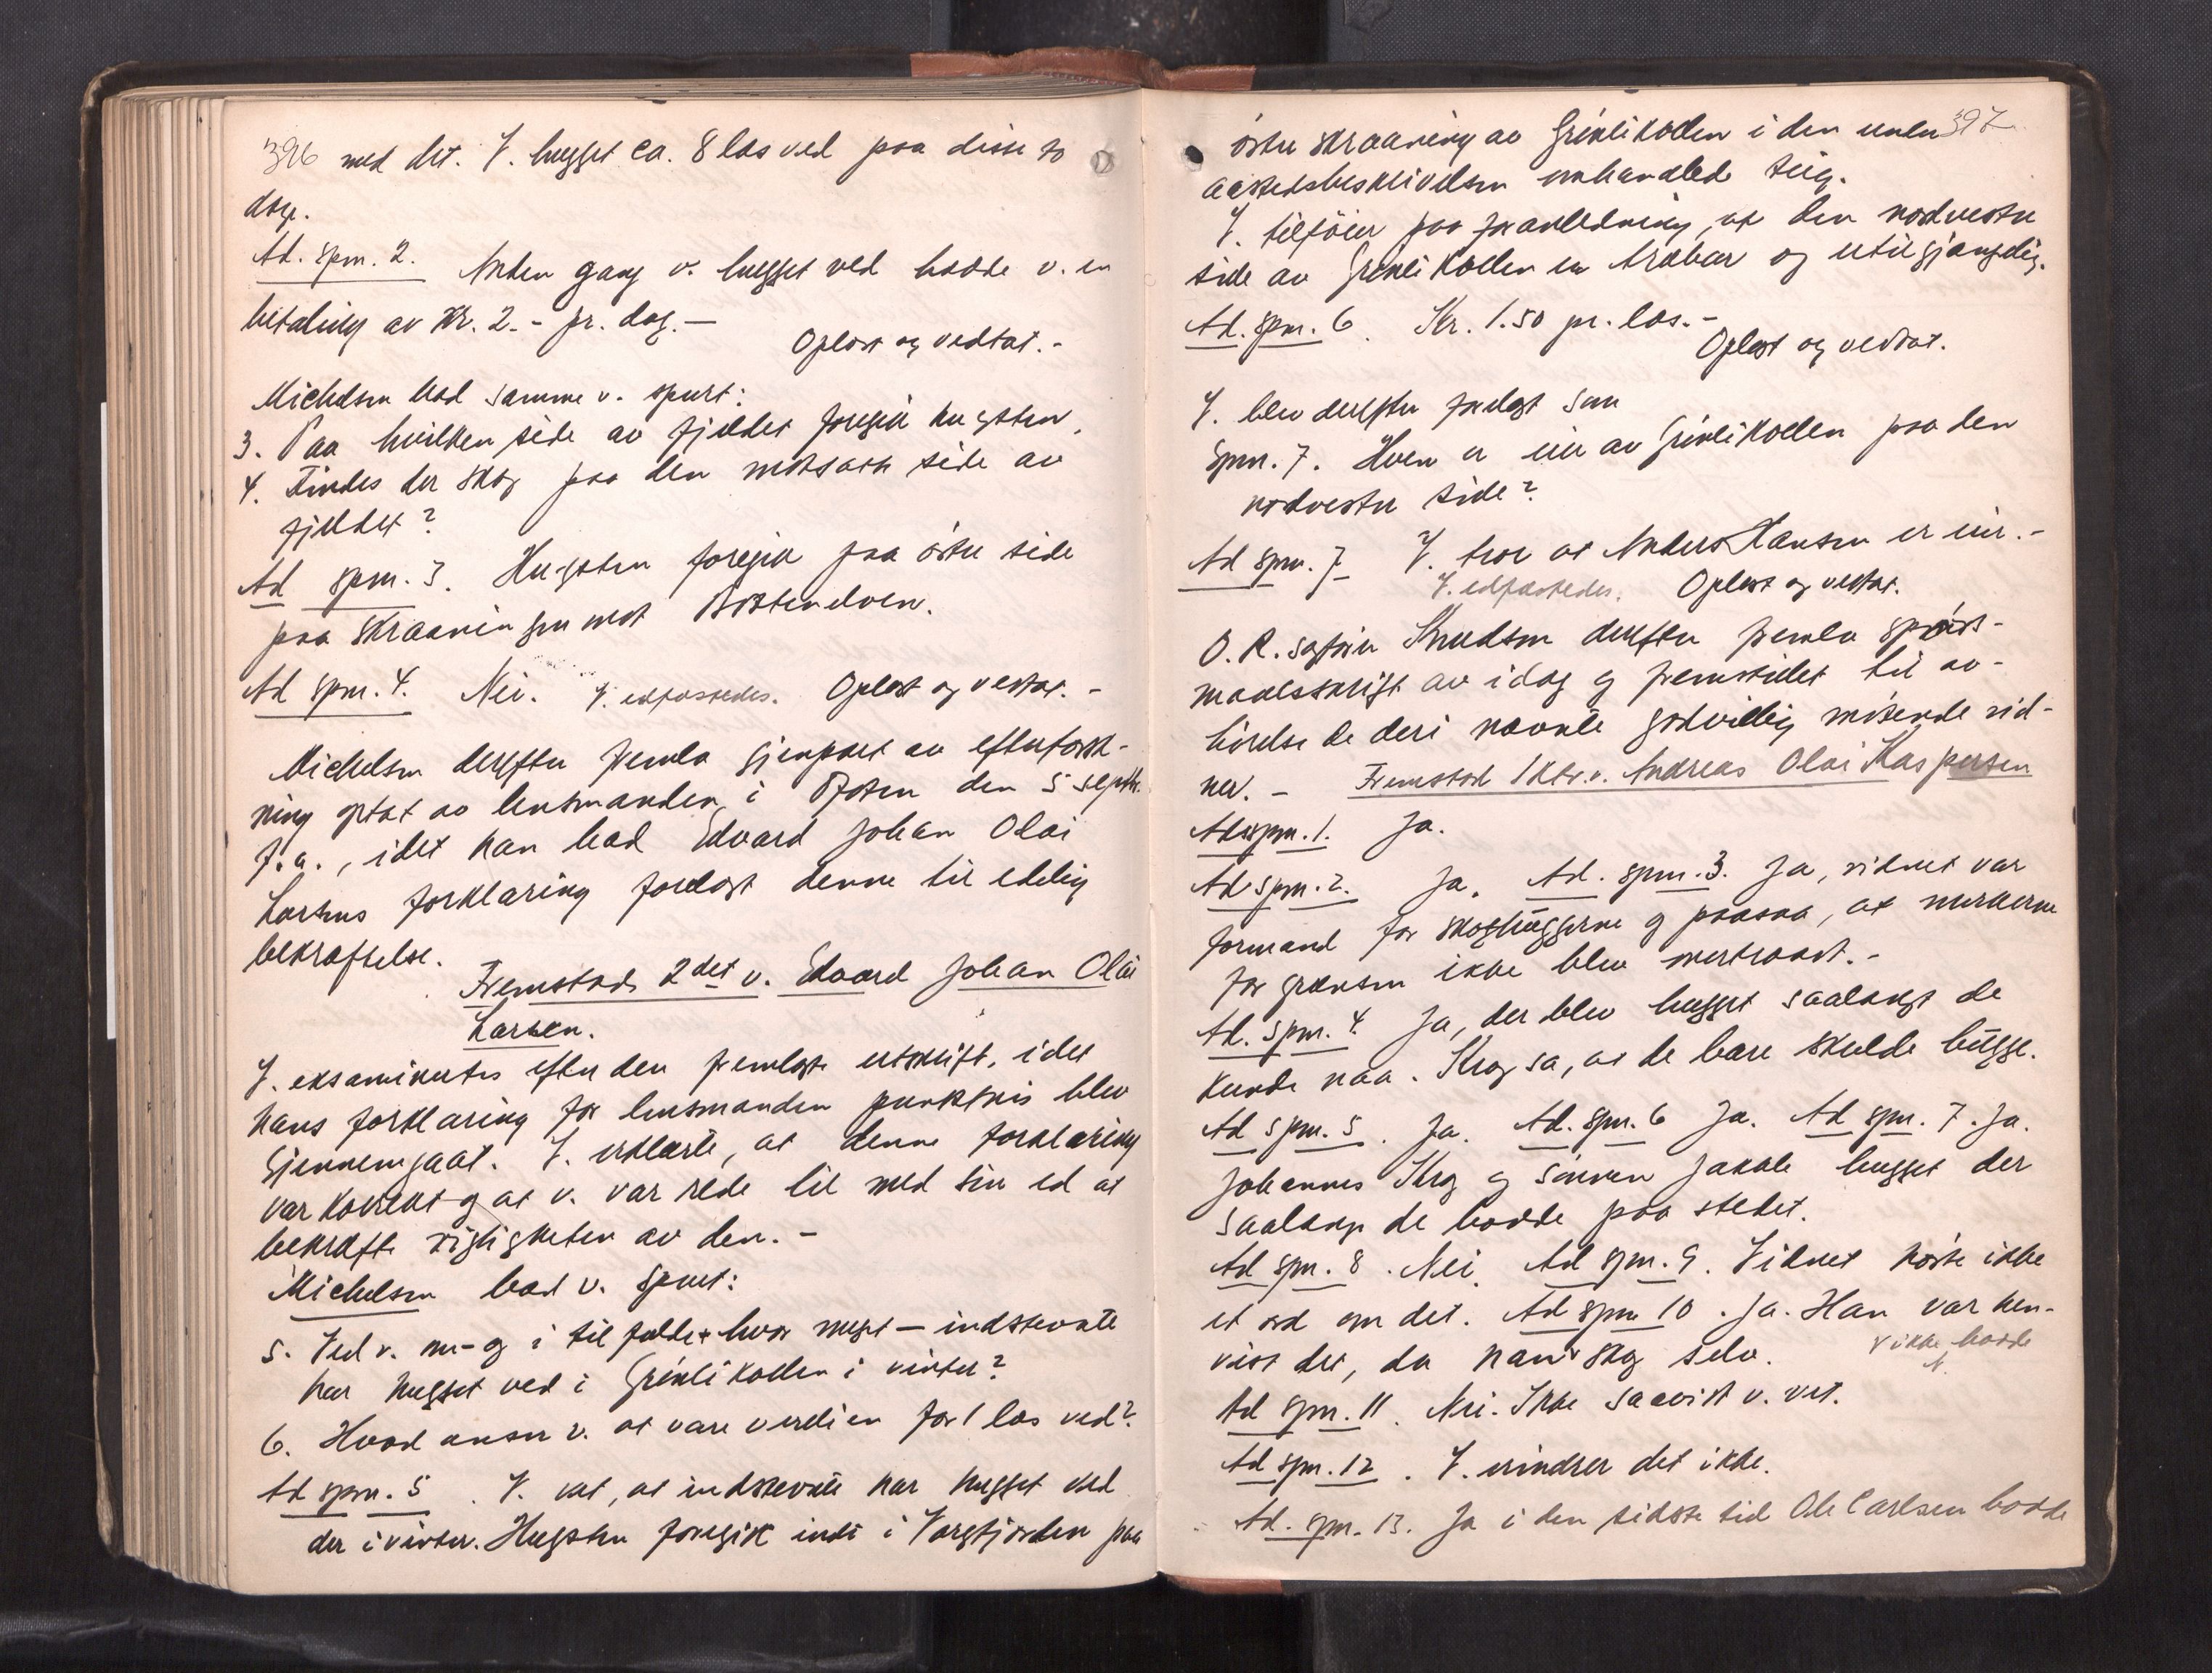 396 med det. V. hugget ca. 8 las ved paa disse to
dage.
Ad. spm. 2. Anden gang v. hugget ved hadde v. en
betaling av Kr. 2.- pr. dag. —
Oplæst og vedtat. -
Michelsen bad samme v. spurt:
3. Paa hvilken side av fjeldet foregik hugsten.
4. Findes der skog paa den motsatte side av
fjeldet?
Ad spm. 3. Hugsten foregik paa östre side
paa skraaningen mot Botnelven.
Ad spm. 4. Nei. V. edfæstedes. Oplæst og vedtat. -
Michelsen derefter fremla gjenpart av efterforsk-
ning optat av lensmanden i den 5 septbr.
f.a., idet han bad Edvard Johan Olai
Larsens forklaring forelagt denne til edelig
bekræftelse.
Fremstod 2det v. Edvard Johan Olai
Larsen.
V. eksaminertes efter den fremlagte utskrift, idet
hans forklaring for lensmanden punktvis blev
gjennemgaat. V. erklærte, at denne forklaring
var korrekt og at v. var rede til med sin ed at
bekræfte rigtigheten av den. -
Michelsen bad v. spurt:
5. Ved v. om - og i tilfælde hvor meget - indstevnte
har hugget ved i Grinlikollen i vinter?
6. Hvad anser v. at være verdien for 1 las ved?
Ad spm. 5. V. vet, at indstevnte har hugget ved
der i vinter. Hugsten foregik inde i Vargfjorden paa
397
östre skraaning av Grinlikollen i den under
aastedsbeskrivelsen omhandlede teig.
V. tilföier paa foranledning, at den nordvestre
side av Grinlikollen er træbar og utilgjængelig.
Ad. spm. 6. Kr. 1.50 pr. las. -
Oplæst og vedtat.
V. blev derefter forelagt som
Spm. 7. Hvem er eier av Grinlikollen paa den
nordvestre side?
Ad spm. 7 V. tror at Anders Hansen er eier. -
V. edfæstedes. Oplæst og vedtat.
O.R. sagförer Knudsen derefter fremla spörs-
maalsskrift av idag og fremstillet til av-
hörelse de deri nævnte godvillig mötende vid-
ner. - Fremstod 1ste v. Andreas Olai Kaspersen
Ad spm. 1. Ja.
Ad spm. 2. Ja. Ad. spm. 3. Ja, vidnet var
formand for skoghuggerne og paasaa, at merkerne
for grænsen ikke blev overtraadt. -
Ad. spm. 4. Ja, der blev hugget saalangt de
kunde naa. Krog sa, at de bare skulde hugge.
Ad spm. 5. Ja. Ad. spm. 6 Ja. Ad spm. 7. Ja.
Johannes Krog og sönnen Jakob hugget der
saalænge de bodde paa stedet.
Ad spm. 8. Nei. Ad spm. 9. Vidnet hörte ikke
et ord om det. Ad spm 10. Ja. Han var hen-
vist det, da han v skog selv. v ikke hadde
Ad spm. 11. Nei. Ikke saavidt v. vet.
Ad spm. 12. V. erindrer det ikke.
Ad. spm. 13. Ja i den sidste tid Ole Carlsen bodde